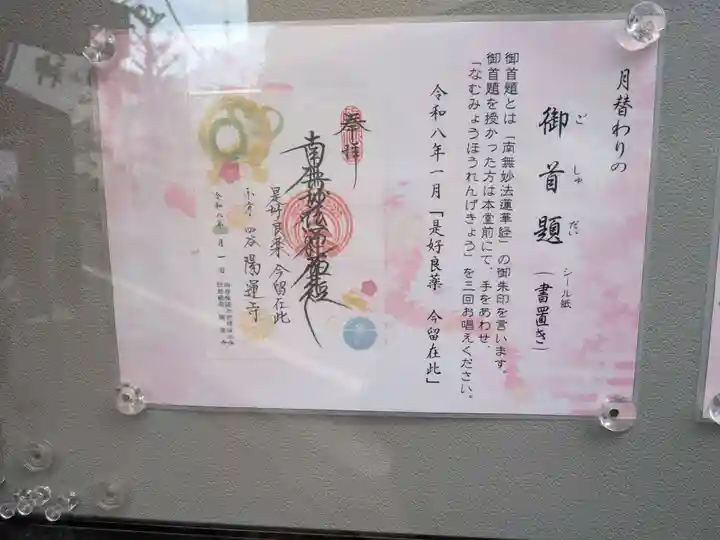 月替わりの
御首題
ごしゅだい
シール紙
(書置き)
御首題とは「南無妙法蓮華経」の御朱印を言います。
御首題を授かった方は本堂前にて、手をあわせ、
「なむみょうほうれんげきょう」を三回お唱えください。
令和八年一月「是好良薬 今留在此」
奉拝
南無妙法蓮華経
是好良薬今留在此
四谷 陽運寺
令和八年一月一日